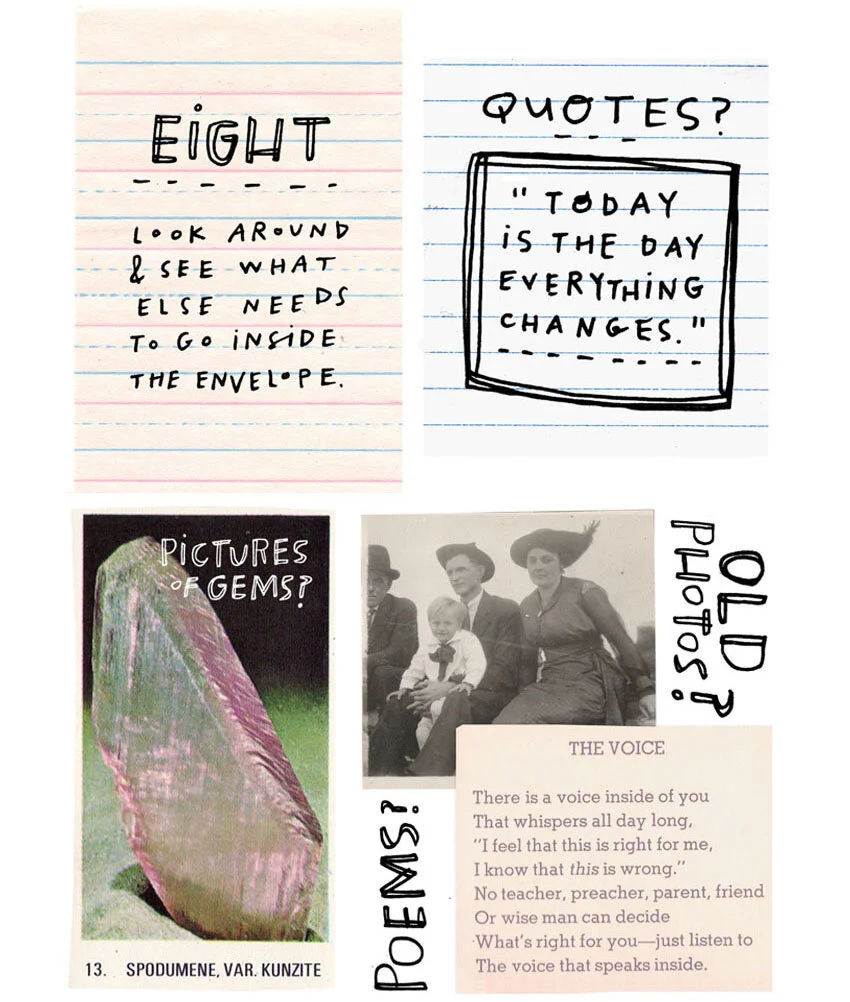 EiGHT
LOOK AROUND
& SEE WHAT
ELSE NEEDS
TO GO iNSiDE
THE ENVELOPE.
QUOTES?
"TODAY
iS THE DAY
EVERYTHiNG
CHANGES."
PiCTURES
OF GEMS?
13. SPODUMENE, VAR. KUNZITE
OLD
PHOTOS?
POEMS?
THE VOICE
There is a voice inside of you
That whispers all day long,
"I feel that this is right for me,
I know that this is wrong."
No teacher, preacher, parent, friend
Or wise man can decide
What's right for you—just listen to
The voice that speaks inside.